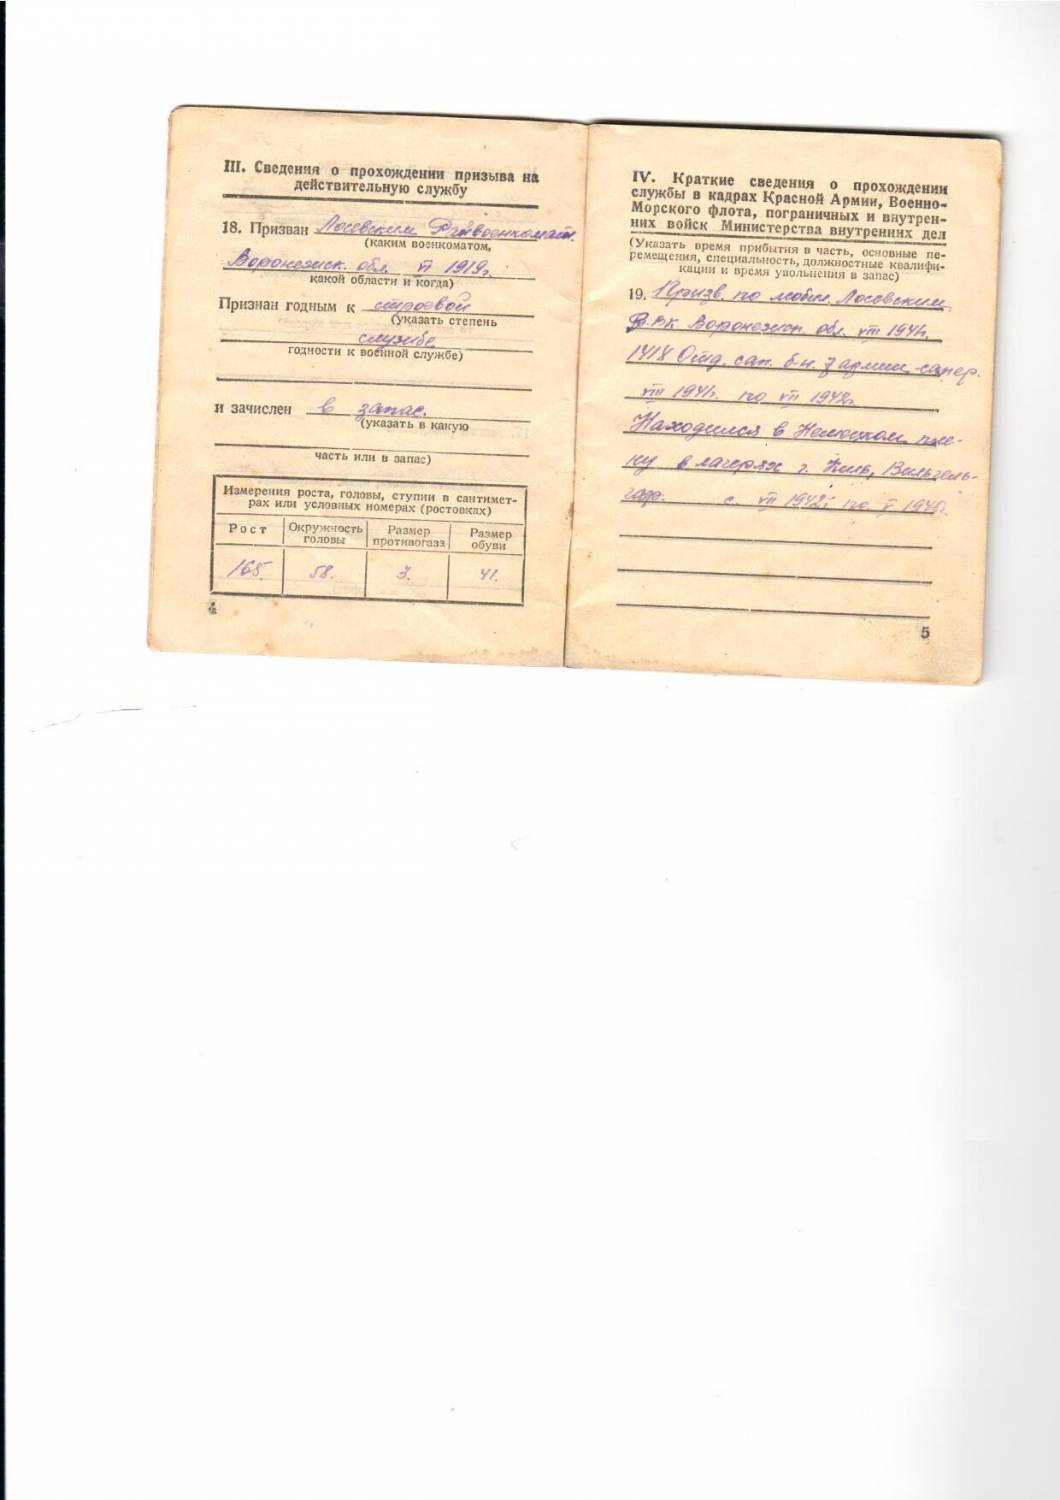 III. Сведения о прохождении призыва на
действительную службу
18. Призван Лосевским Райвоенкомат.
(каким военкоматом,
Воронежск. обл. VI 1919г.
какой области и когда)
Признан годным к строевой
(указать степень
службе
годности к военной службе)
и зачислен в запас.
(указать в какую
часть или в запас)
Измерения роста, головы, ступни в сантимет-
рах или условных номерах (ростовках)
Рост Окружность головы Размер противогаза Размер обуви
165. 58. 3. 41.
4
IV. Краткие сведения о прохождении
службы в кадрах Красной Армии, Военно-
Морского флота, пограничных и внутрен-
них войск Министерства внутренних дел
(Указать время прибытия в часть, основные пе-
ремещения, специальность, должностные квалифи-
кации и время увольнения в запас)
19. Призв. по мобил. Лосевским
РВК Воронежск. обл. VIII 1941г.
1418 Отд. сап. б-н. 3 армии сапер.
VIII 1941г. по VII 1942г.
Находился в Немецком пле-
ну в лагерях г. Киль, Вильгель-
с VII 1942г. по V 1945г.
5